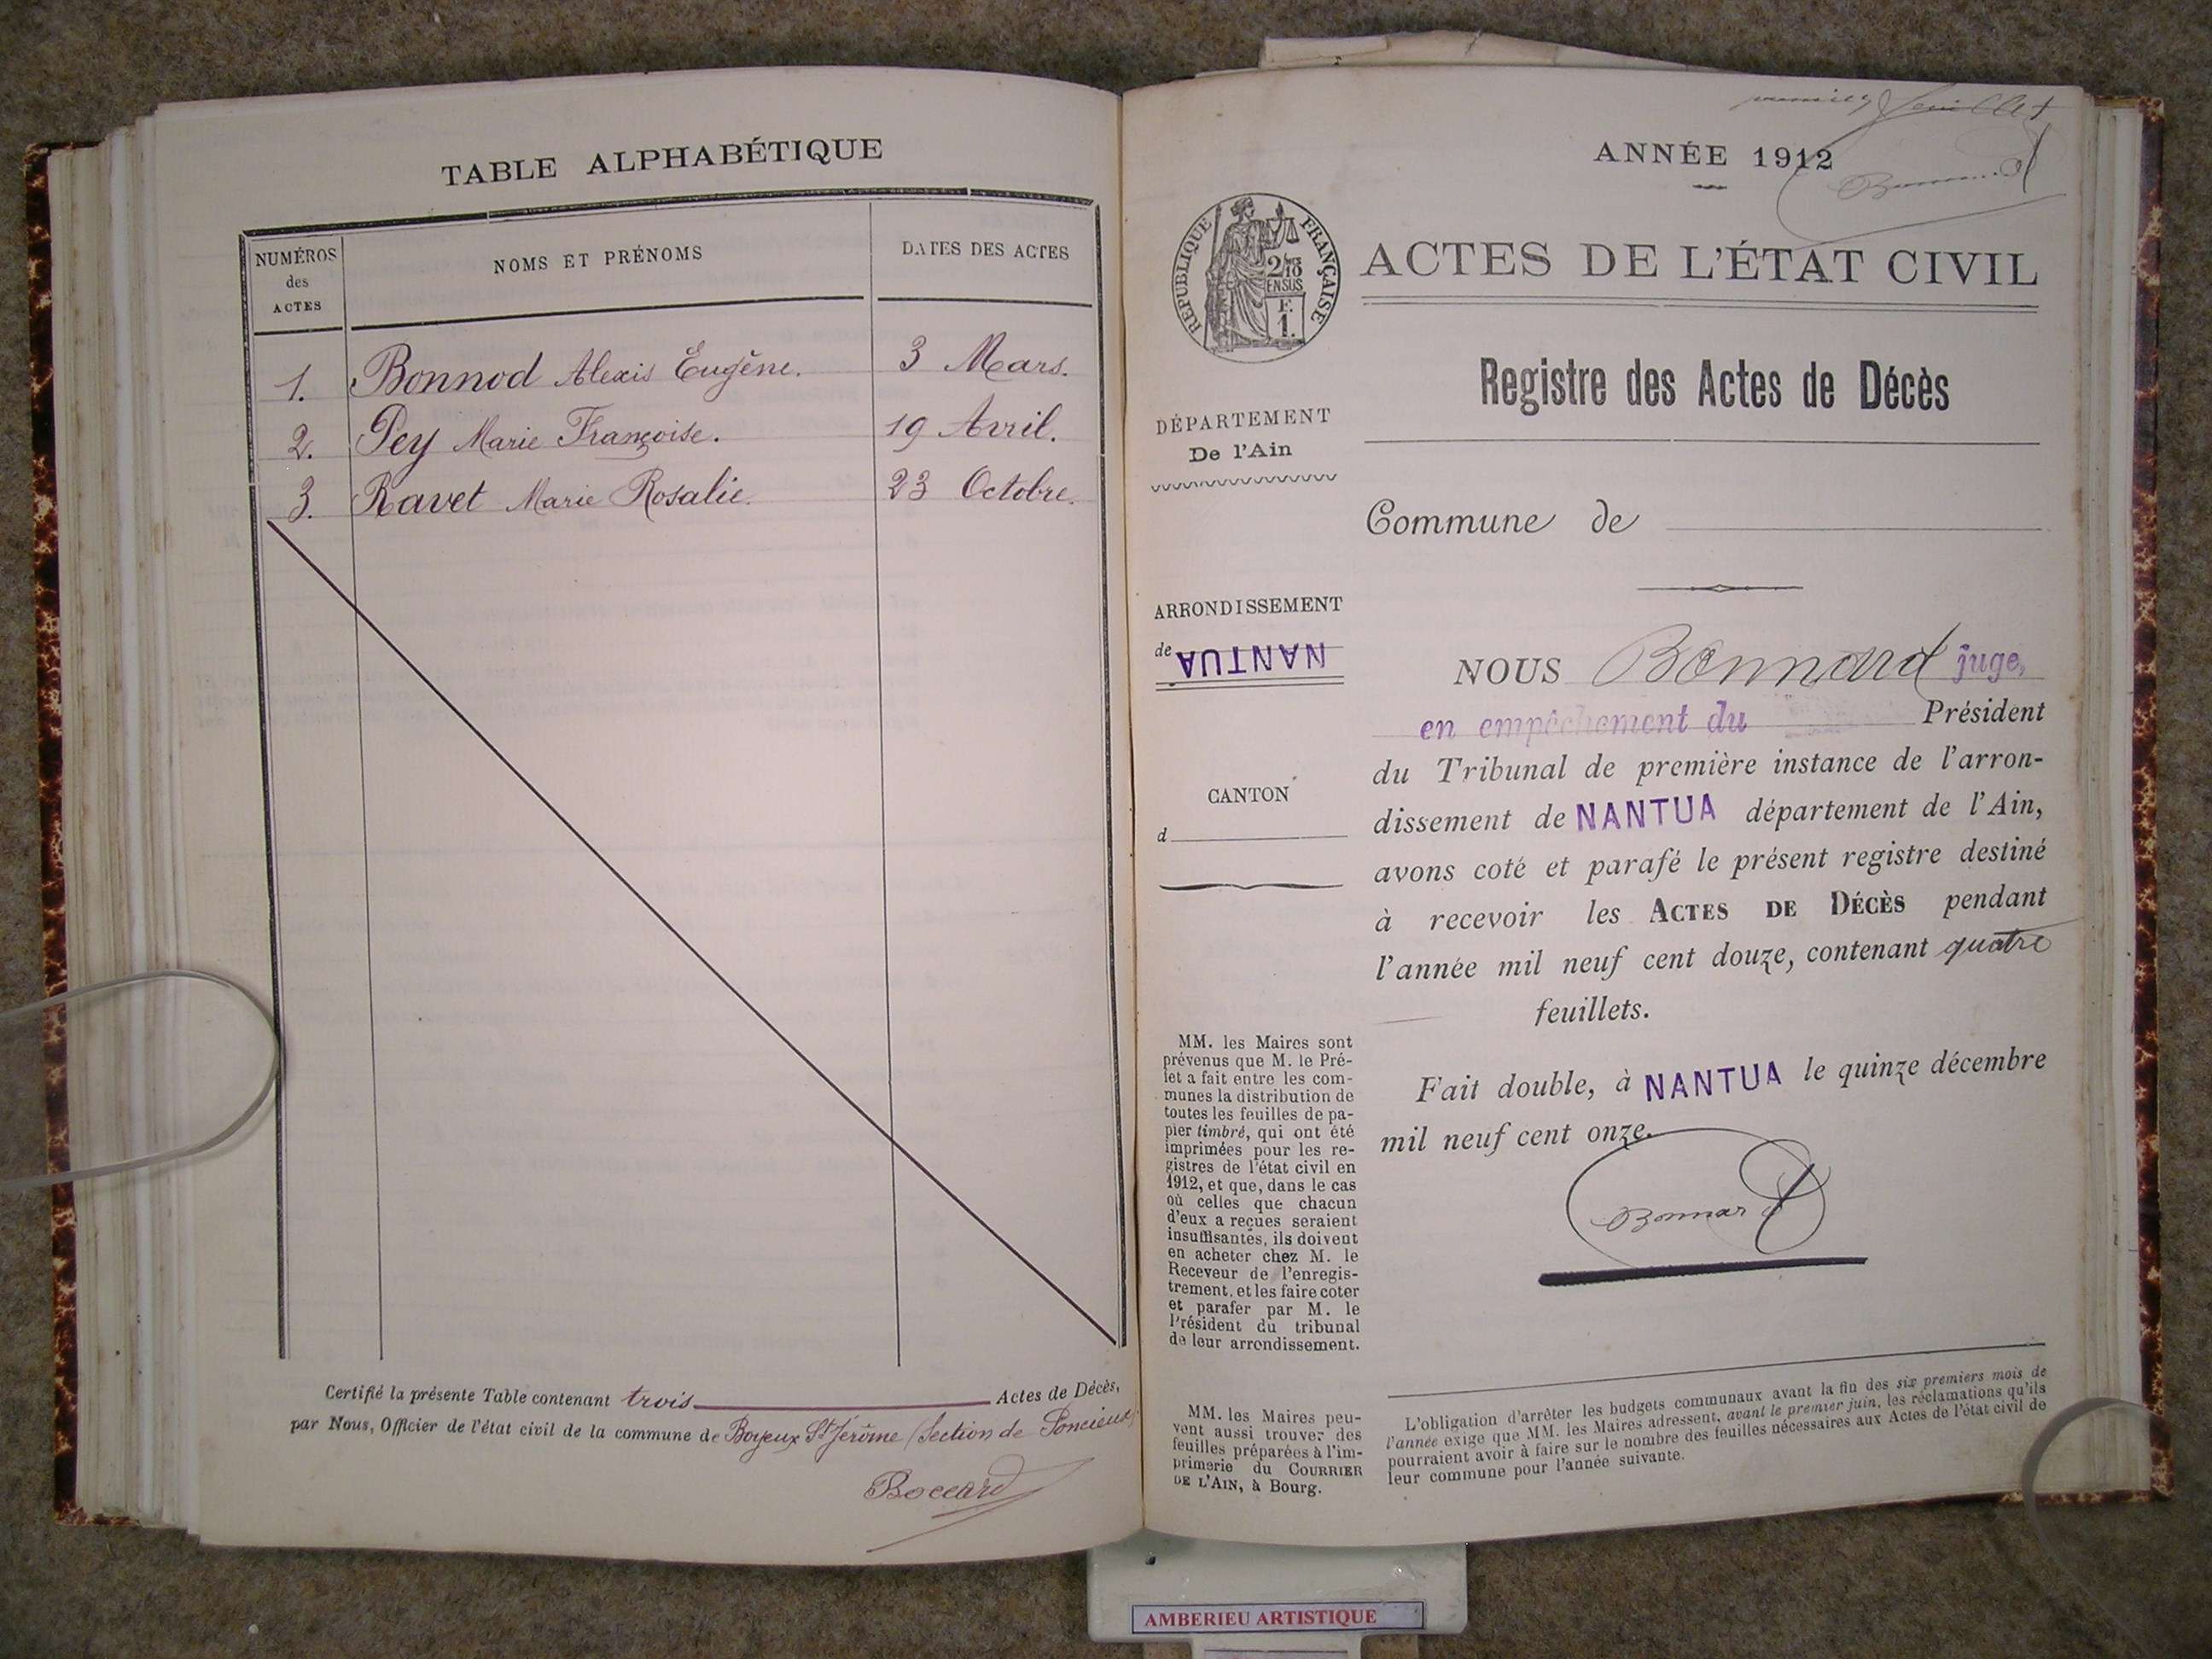 TABLE ALPHABÉTIQUE
NUMÉROS
des
ACTES
NOMS ET PRÉNOMS
DATES DES ACTES
1. Bonnod Alexis Eugène. 3 Mars.
2. Pey Marie Françoise. 19 Avril.
3. Ravet Marie Rosalie. 23 Octobre.
Certifié la présente Table contenant trois Actes de Décès,
par Nous, Officier de l'état civil de la commune de Boyeux St Jérôme (Section de Poncieux)
Boccard
premier feuillet
Bonnard
ANNÉE 1912
RÉPUBLIQUE FRANÇAISE
2/10
EN SUS
E.
1.
ACTES DE L'ÉTAT CIVIL
Registre des Actes de Décès
DÉPARTEMENT
De l'Ain
Commune de
ARRONDISSEMENT
de NANTUA
CANTON
d
NOUS Bonnard juge,
en empêchement du Président
du Tribunal de première instance de l'arron-
dissement de NANTUA département de l'Ain,
avons coté et parafé le présent registre destiné
à recevoir les ACTES DE DÉCÈS pendant
l'année mil neuf cent douze, contenant quatre
feuillets.
Fait double, à NANTUA le quinze décembre
mil neuf cent onze.
Bonnard
MM. les Maires sont
prévenus que M. le Pré-
fet a fait entre les com-
munes la distribution de
toutes les feuilles de pa-
pier timbré, qui ont été
imprimées pour les re-
gistres de l'état civil en
1912, et que, dans le cas
où celles que chacun
d'eux a reçues seraient
insuffisantes, ils doivent
en acheter chez M. le
Receveur de l'enregis-
trement, et les faire coter
et parafer par M. le
Président du tribunal
de leur arrondissement.
MM. les Maires peu-
vent aussi trouver des
feuilles préparées à l'im-
primerie du COURRIER
DE L'AIN, à Bourg.
L'obligation d'arrêter les budgets communaux avant la fin des six premiers mois de
l'année exige que MM. les Maires adressent, avant le premier juin, les réclamations qu'ils
pourraient avoir à faire sur le nombre des feuilles nécessaires aux Actes de l'état civil de
leur commune pour l'année suivante.
AMBERIEU ARTISTIQUE